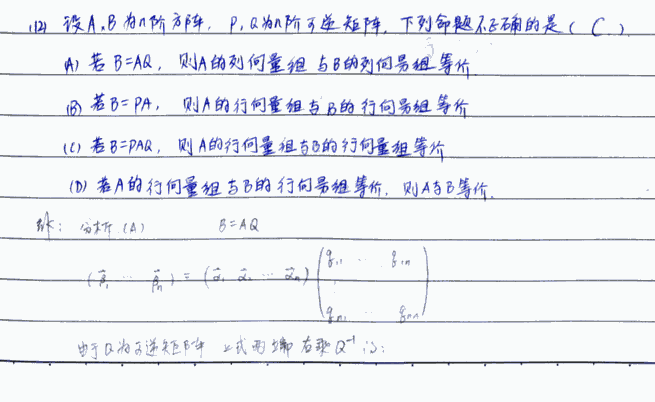 (12) 设A,B为n阶方阵, P,Q为n阶可逆矩阵, 下列命题不正确的是( C )
(A) 若B=AQ, 则A的列向量组与B的列向量组等价
(B) 若B=PA, 则A的行向量组与B的行向量组等价
(C) 若B=PAQ, 则A的行向量组与B的行向量组等价
(D) 若A的行向量组与B的行向量组等价, 则A与B等价.
解: 分析 (A) B=AQ
(β₁ ⋯ βₙ) = (α₁ α₂ ⋯ αₙ) (q₁₁ ⋯ q₁ₙ
qₙ₁ ⋯ qₙₙ)
由于Q为可逆矩阵 上式两端右乘Q⁻¹得: